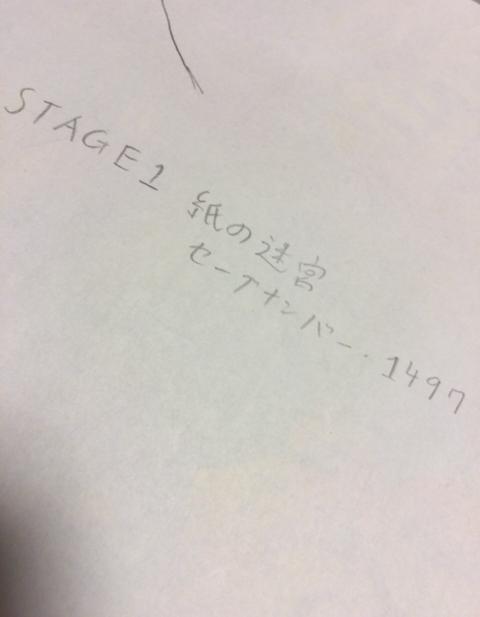 STAGE1 紙の迷宮
セーブナンバー・1497